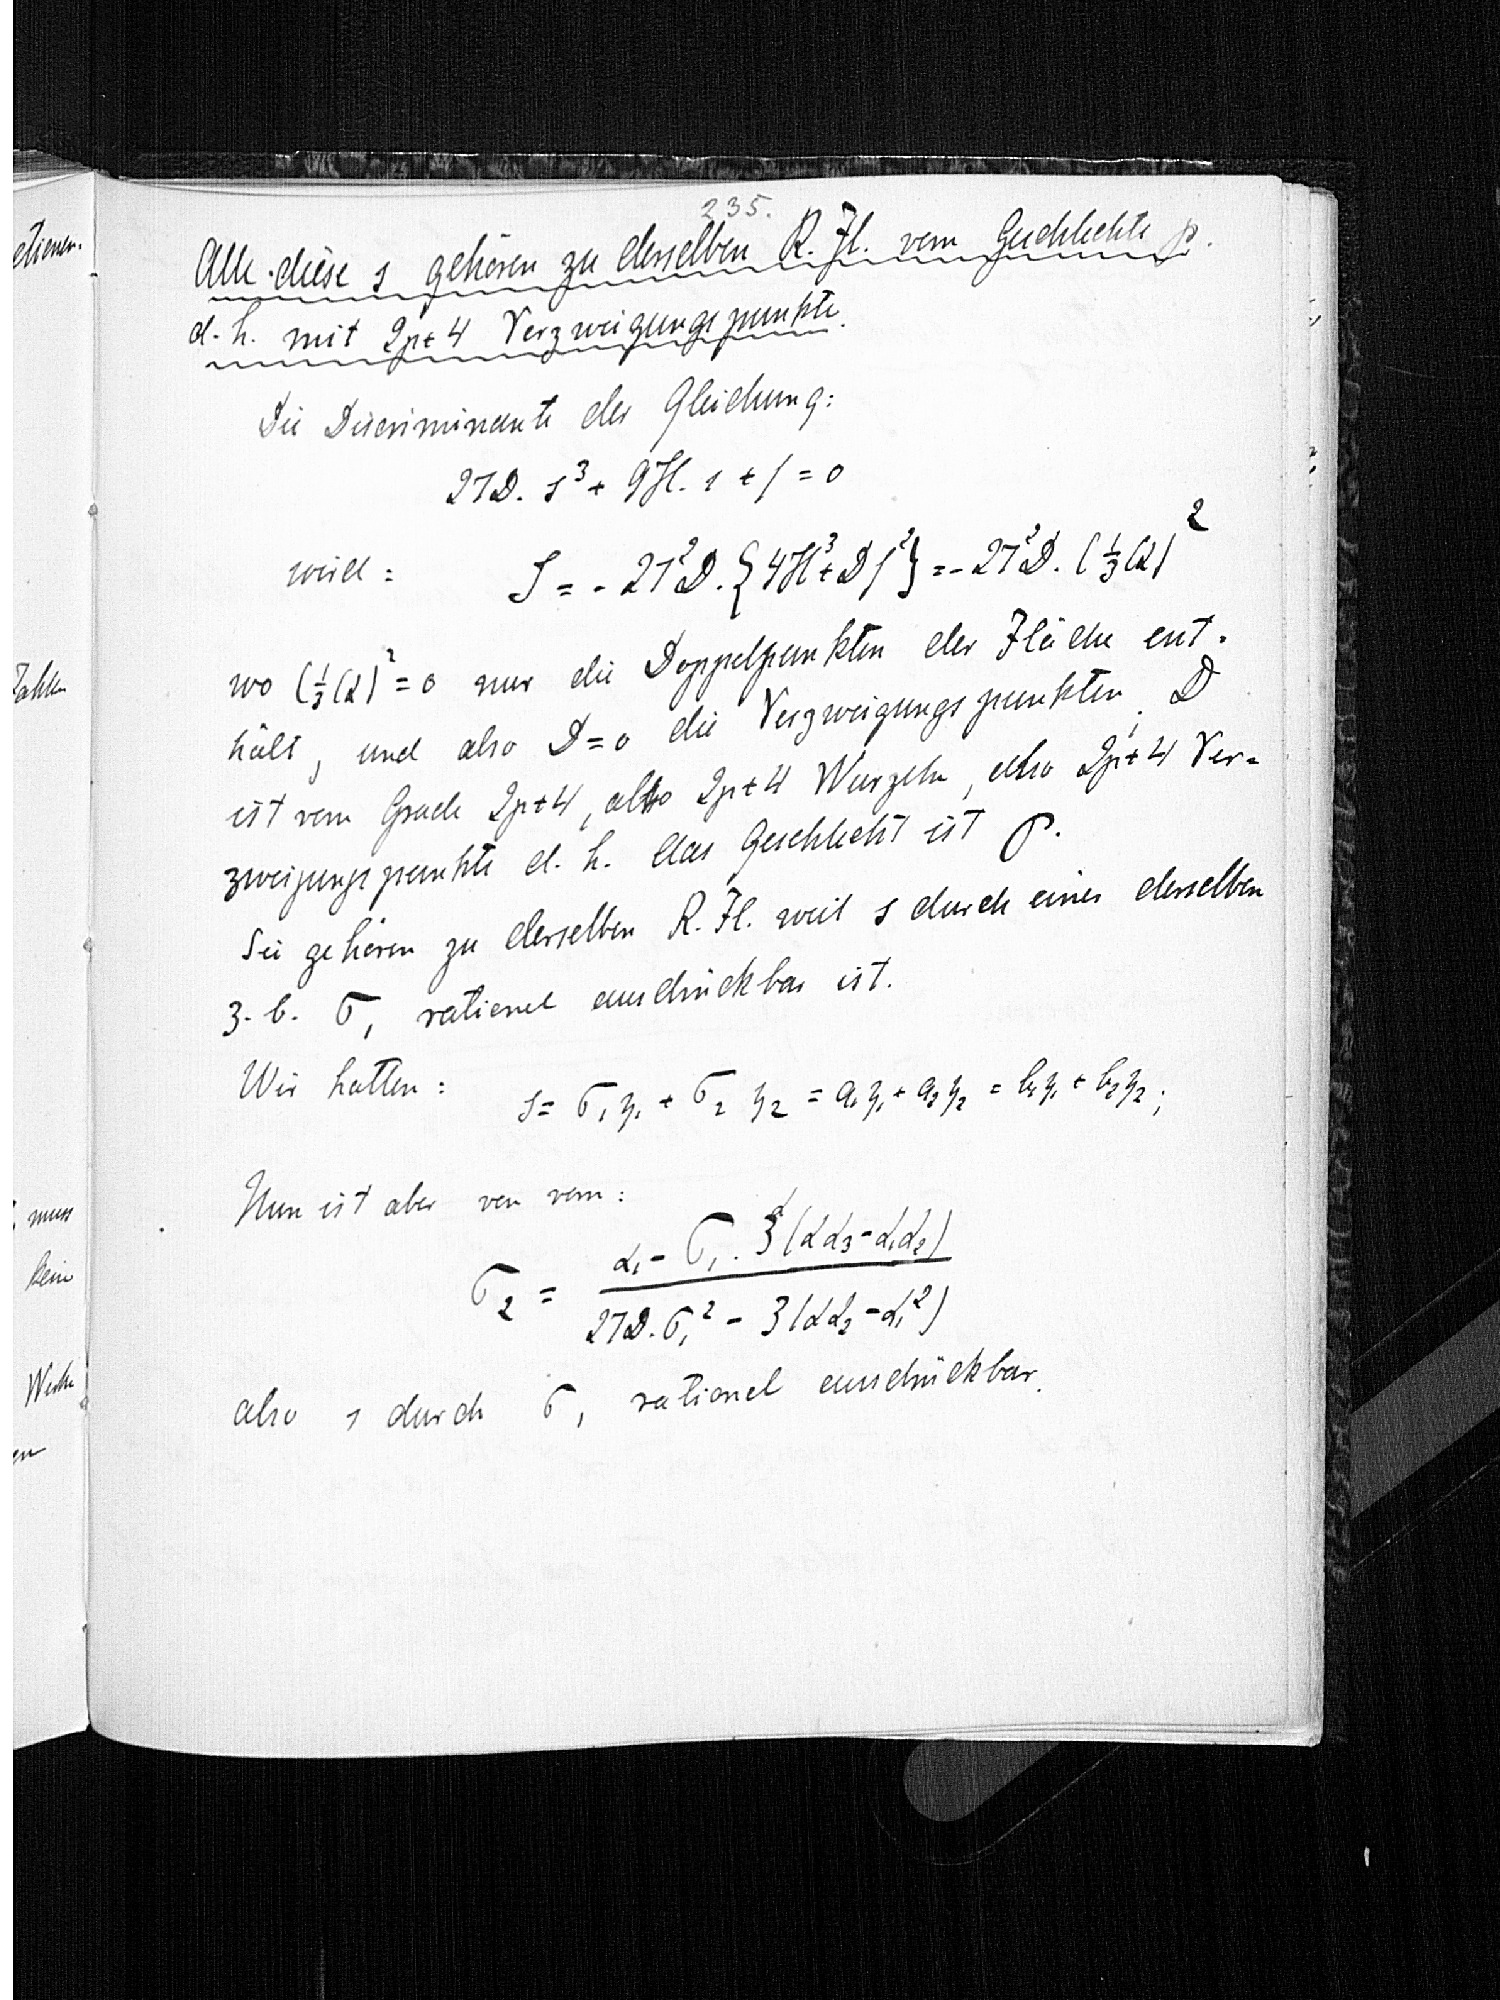 235.
Alle diese s gehören zu derselben R. Fl. vom Geschlechte p.
d. h. mit 2p+4 Verzweigungspunkte.
Die Discriminante der Gleichung:
27D. s³ + 9H. s + f = 0
wird: J = - 27²D. {4H³ + Df²} = - 27²D. (⅓Q)²
wo (⅓Q)² = 0 nur die Doppelpunkten der Fläche ent-
hält, und also D=0 die Verzweigungspunkten, D
ist vom Grade 2p+4, also 2p+4 Wurzeln, also 2p+4 Ver=
zweigungspunkte d. h. das Geschlecht ist p.
Sei gehören zu derselben R. Fl. weil s durch eines derselben
z. b. σ₁ rationel ausdrückbar ist.
Wir hatten: s = σ₁η₁ + σ₂ η₂ = a₁η₁ + a₂η₂ = b₁η₁ + b₂η₂;
Nun ist aber von vorn:
σ₂ = (α₁ - σ₁. 3(αα₃ - α₁α₂)) / (27D. σ₁² - 3(αα₂ - α₁²))
also s durch σ₁ rationel ausdrückbar.
Zahlen
muss
kein